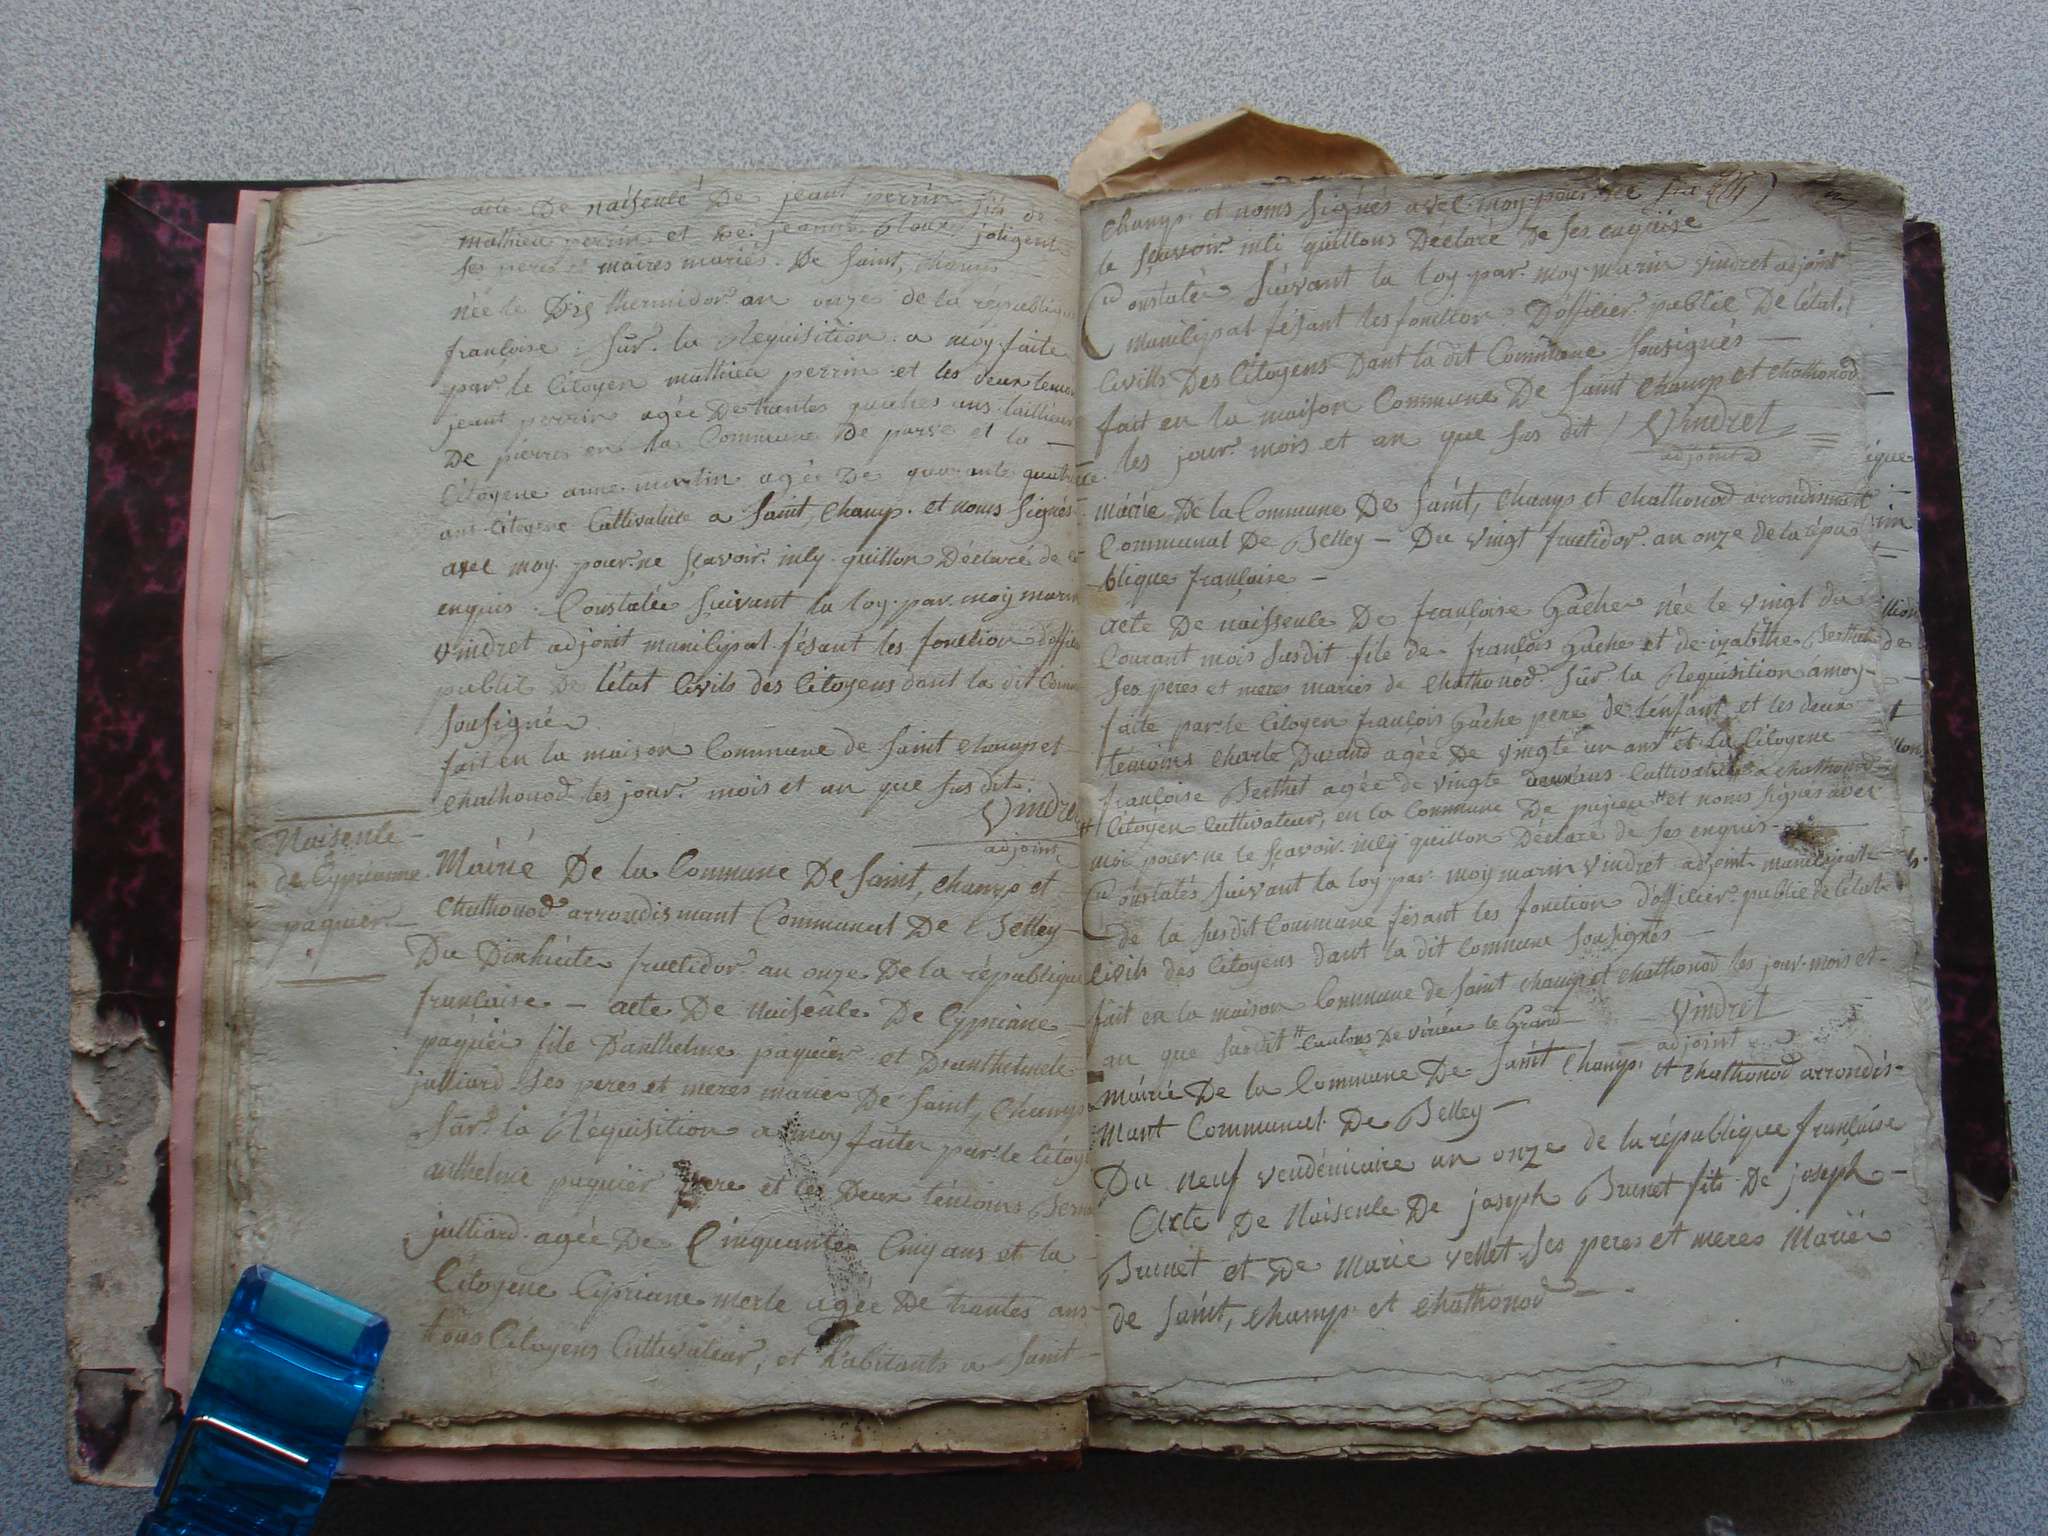 acte De naisense De jeant perrin fils de
mathieu perrin et De jeanne joligent
ses peres et maires mariés De Saint, Champ
née le Dix thermidor an onze de la république
francoise Sur la Requisition a moy faite
par le Citoyen mathieu perrin et les deux temoin
jeant perrin agée De trantes ans tallieur
De pierres en la Commune De parve et la
Citoyene anne martin agée De quarante quatre
ans Citoyene Cultivatrice a Saint, Champ et noms Signés
avec moy pour ne sçavoir inly quillon Déclaré de ce
enquis Constatée suivant la loy par moy marin
Vindret adjoint municipal fésant les fonction dofficier
public De létat Civils des Citoyens dant la dit Comune
sousigné
fait en la maison Commune de saint Champ et
Chathonod les jour mois et an que sus dit
Vindret
adjoint
Naisense
de Cyprianne
paquier
Mairié De la Commune De Saint, Champ et
Chathonod arrondismant Communal De Belley
Du Dixhuite fructidor an onze De la république
francaise — acte De Naisence De Cypriane
paquier file D'anthelme paquier et Dianthelmete
julliard ses peres et meres maries De Saint, Champ
Sur la Réquisition a moy faite par le Citoyen
anthelme paquier pere et les Deux témoins
julliard agée De Cinquante Cinq ans et la
Citoyene Cypriane merle agée De trantes ans
tous Citoyens Cultivateur, et habitants a Saint
Champ et noms signés avec moy pour ne
le sçavoir inli quillons Declaré De ses enquise
Constatée Suivant la loy par moy marin vindret adjoint
municipal fésant les fonction D'officier public De létat
Civills Des Citoyens Dant la dit Commune Sousignés —
fait en la maison Commune De Saint Champ et Chathonod
les jour mois et an que sus dit / Vindret
adjoint
Mairie De la Commune De Saint, Champ et Chathonod arrondismant
Communal De Belley — Du vingt fructidor an onze de la répu
blique françaize —
acte De naissence De françoise Gache née le vingt du
Courant mois susdit file de françois Gache et de izabthe Berthet
ses peres et meres mariés de Chathonod Sur la Requisition a moy
faite par le Citoyen françois Gache pere de lenfant et les deux
témoins Charle Durand agée De vingte un ans et la Citoyene
françoise Berthet agée de vingte deux ans Cultivatrice a Chathonod
Citoyen Cultivateur, en la Commune De pugieu et noms signés avec
moi pour ne le sçavoir inly quillon Déclaré de ses enquis
Constatés suivant la loy par moy marin vindret adjoint municipale
De la susdit Commune fésant les fonction dofficier public de létat
Civils des Citoyens dant la dit Commune sousignés —
fait en la maison Commune de Saint Champ et Chathonod les jour mois et
an que susdit Cantons De virieu le Grand Vindret
adjoint
Mairié De la Commune De Saint Champ et Chathonod arrondis-
mant Communal De Belley —
Du neuf vendémiaire an onze de la république françaíse
Acte De Naisence De joseph Brunet fils De joseph
Brunet et De Marie vellet ses peres et meres Mariés
de Saint, Champ et Chathonod —